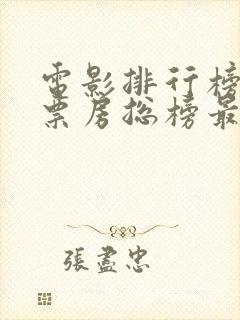 電影排行榜
票房总榜最
張盡忠